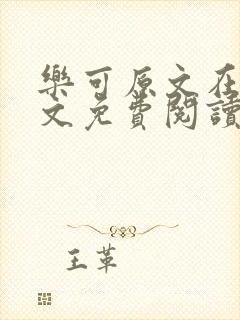 樂可原文在
文免費閱讀
王革